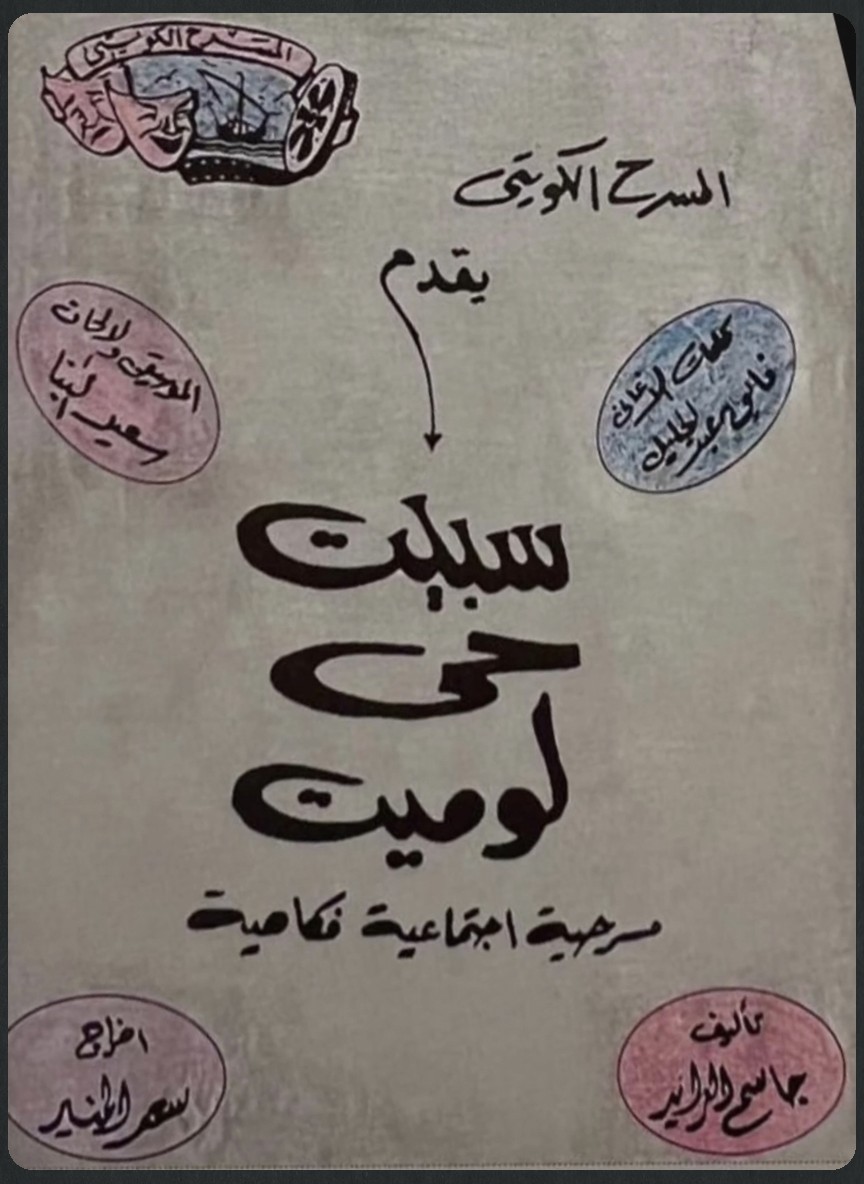 المسرح الكويتي
المسرح الكويتى
يقدم
كلمات الأغاني
فايق عبد الجليل
الموسيقى والألحان
سعيد البنا
سبيت
حى
لوميت
مسرحية اجتماعية فكاهية
تأليف
جاسم الزايد
اخراج
سعد المنير